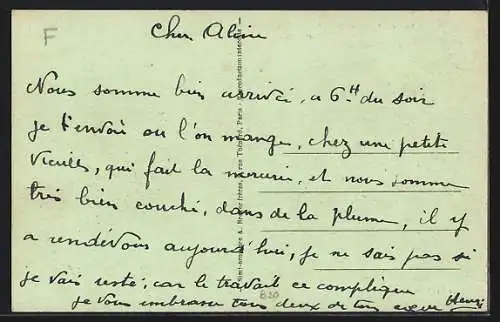 F
Cher Aline
Nous somme bien arrivé, a 6H du soir
je t'envoi ou l'on mange, chez une petite
vieille, qui fait la mercerie, et nous somme
très bien couché, dans de la plume, il y
a rendévous aujourd'hui, je ne sais pas si
je vais resté, car le travail ce complique
je vous embrasse tous deux de tout coeur Henri
B20